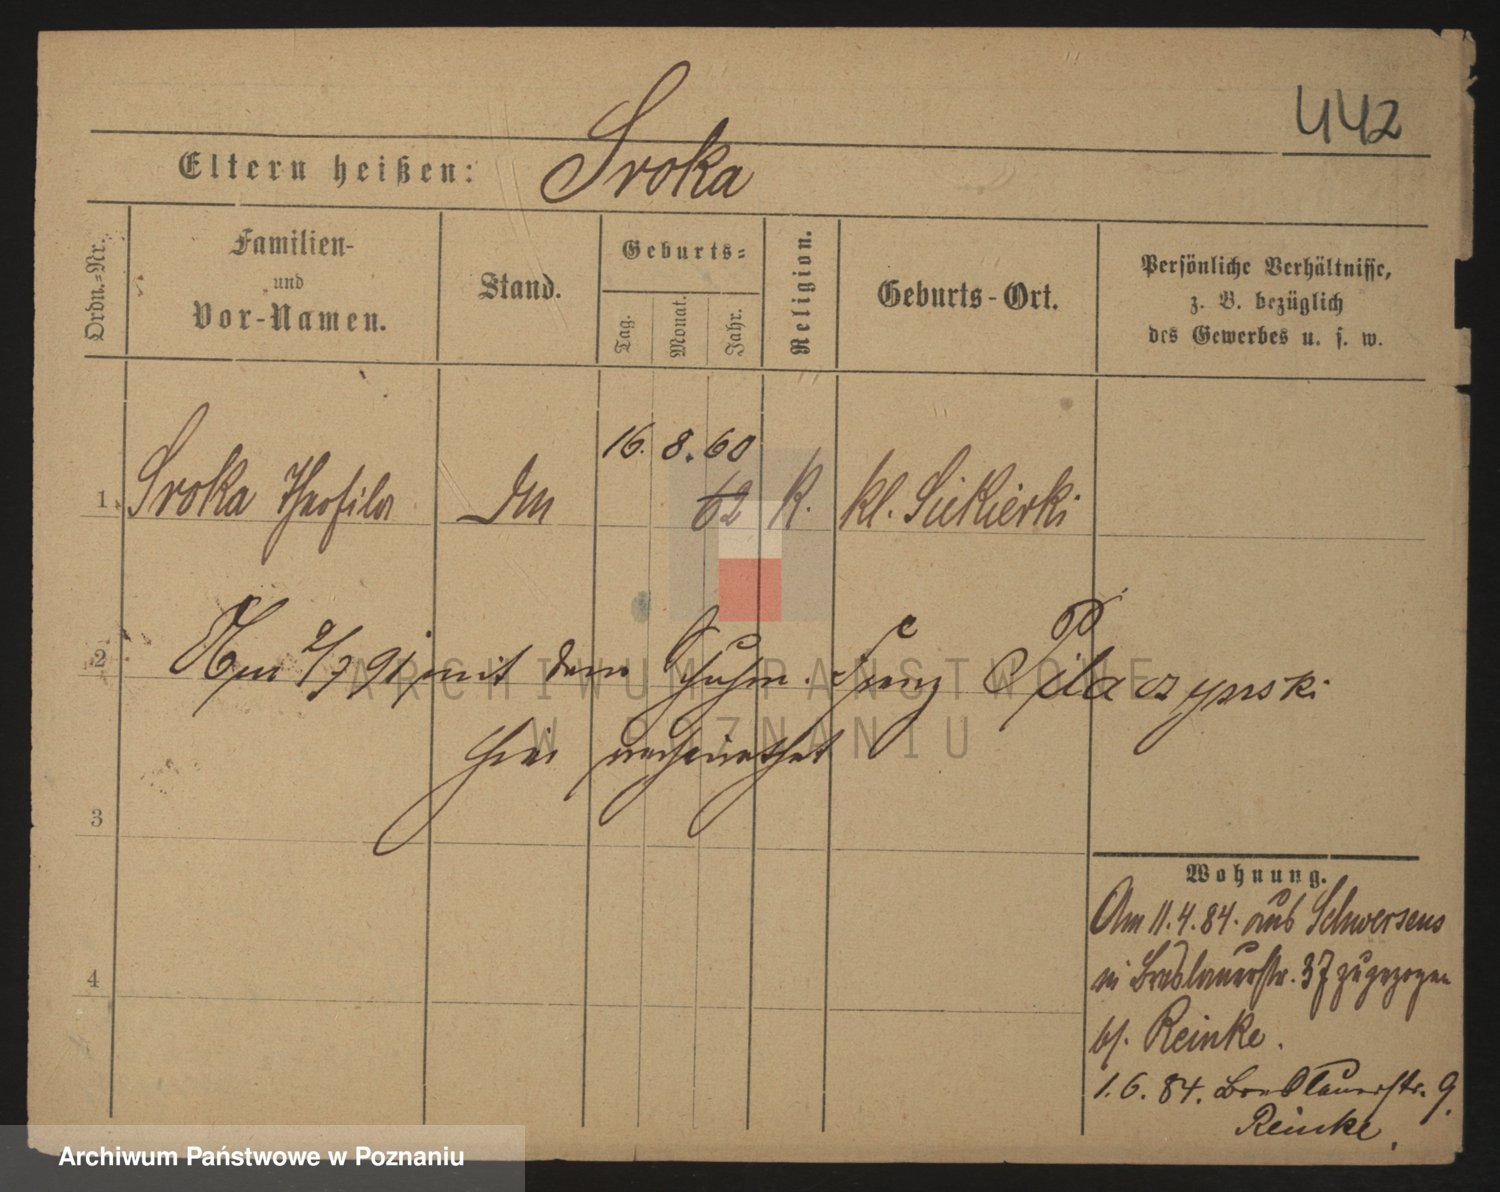 442
Eltern heißen: Sroka
Ordn.-Nr.
Familien-
und
Vor-Namen.
Stand.
Geburts-
Tag.
Monat.
Jahr.
Religion.
Geburts-Ort.
Persönliche Verhältnisse,
z. B. bezüglich
des Gewerbes u. s. w.
16. 8. 60
1. Sroka Theofila 62 K. kl. Siekierki
2
Am 2/7 91 mit dem Schuhm. Franz Pilaczynski
hier verheirathet
3
Wohnung.
Am 11.4.84. aus Schwersens
in Breslauerstr. 37 zugezogen
b/. Reinke.
4
1.6.84. Breslauerstr. 9.
Reinke.
ARCHIWUM PAŃSTWOWE
W POZNANIU
Archiwum Państwowe w Poznaniu